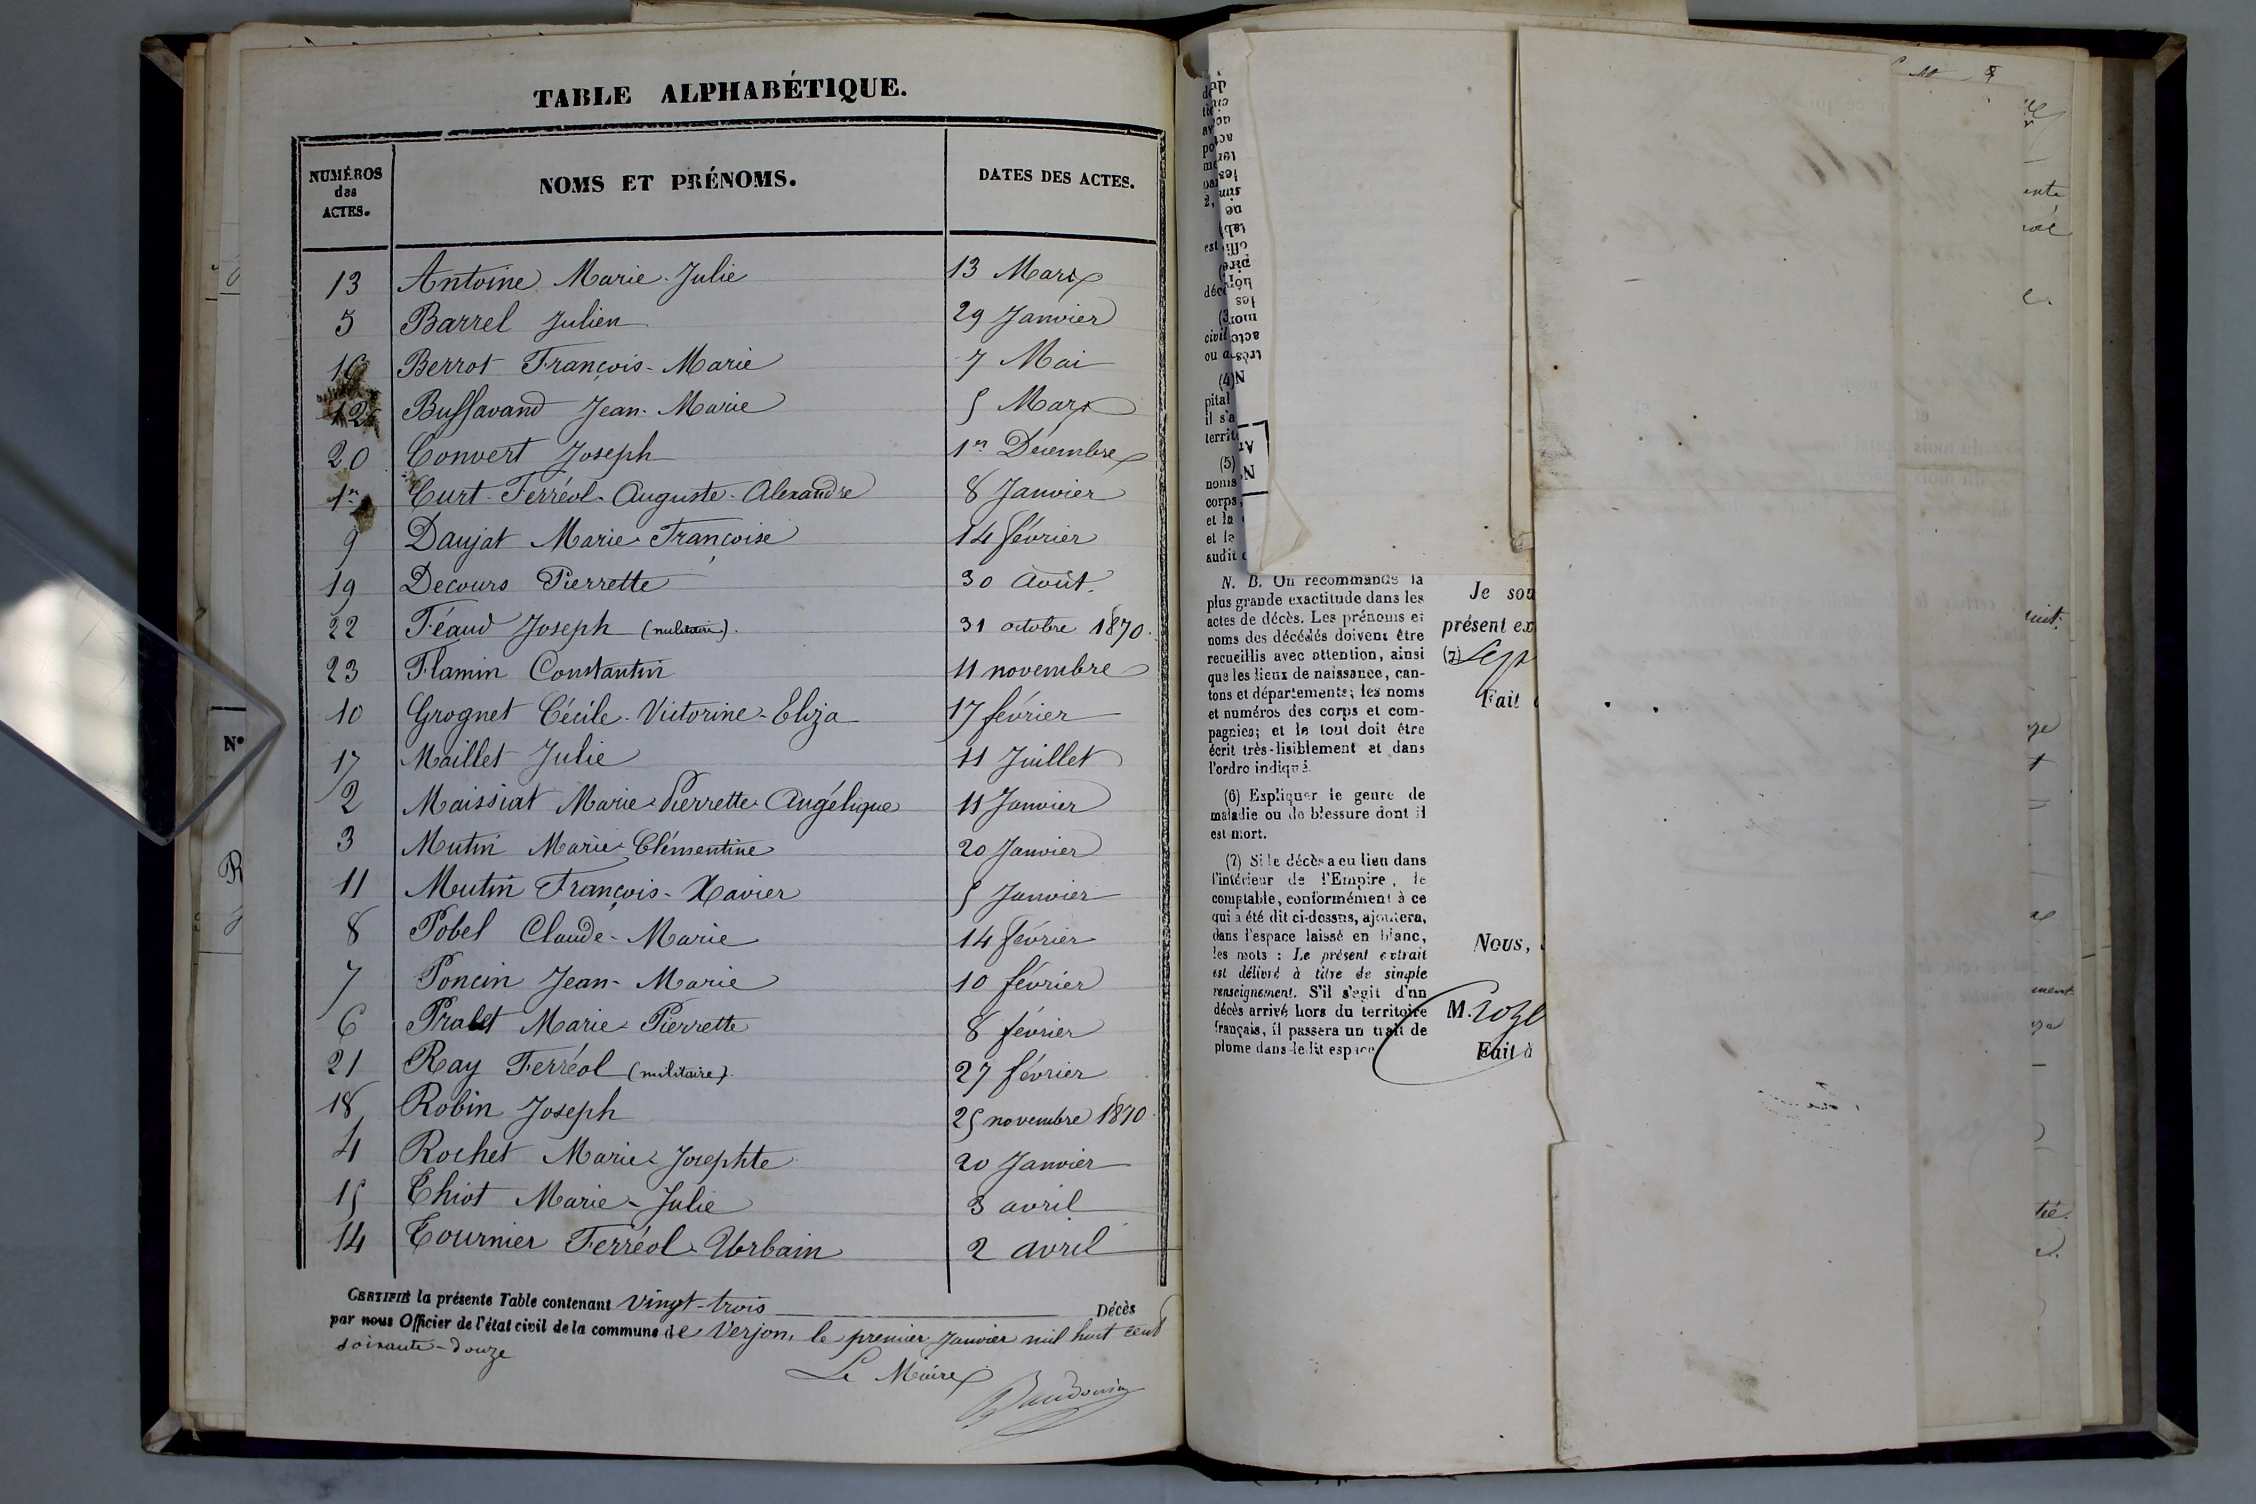 TABLE ALPHABÉTIQUE.
NUMÉROS des ACTES. NOMS ET PRÉNOMS. DATES DES ACTES.
13 Antoine Marie-Julie 13 Mars
5 Barrel Julien 29 Janvier
16 Berrot François-Marie 7 Mai
12 Buffavand Jean-Marie 5 Mars
20 Convert Joseph 1er Décembre
1er Curt-Ferréol-Auguste-Alexandre 8 Janvier
9 Daujat Marie-Françoise 14 février
19 Decours Pierrette 30 août.
22 Féaud Joseph (militaire). 31 octobre 1870.
23 Flamin Constantin 11 novembre
10 Grognet Cécile-Victorine-Eliza 17 février
17 Maillet Julie 11 Juillet
2 Maissiat Marie-Pierrette-Angélique 11 Janvier
3 Mutin Marie-Clémentine 20 Janvier
11 Mutin François-Xavier 5 Janvier
8 Pobel Claude-Marie 14 février
7 Poncin Jean-Marie 10 février
6 Pralet Marie-Pierrette 8 février
21 Ray Ferréol (militaire). 27 février
18 Robin Joseph 25 novembre 1870.
4 Rochet Marie-Josephte 20 Janvier
15 Thiot Marie-Julie 3 avril
14 Tournier Ferréol-Urbain 2 avril
CERTIFIÉ la présente Table contenant Vingt-trois Décès
par nous Officier de l'état civil de la commune de Verjon, le premier Janvier mil huit cent
soixante-douze
Le Maire
Baudouin
N. B. On recommande la
plus grande exactitude dans les
actes de décès. Les prénoms et
noms des décédés doivent être
recueillis avec attention, ainsi
que les lieux de naissance, can-
tons et départements; les noms
et numéros des corps et com-
pagnies; et le tout doit être
écrit très-lisiblement et dans
l'ordre indiqué.
(6) Expliquer le genre de
maladie ou de blessure dont il
est mort.
(7) Si le décès a eu lieu dans
l'intérieur de l'Empire, le
comptable, conformément à ce
qui a été dit ci-dessus, ajoutera,
dans l'espace laissé en blanc,
les mots : Le présent extrait
est délivré à titre de simple
renseignement. S'il s'agit d'un
décès arrivé hors du territoire
français, il passera un trait de
plume dans ledit espace
Je sou
présent ex
(7) Sept
Fait
Nous,
M.
Fait à
N°